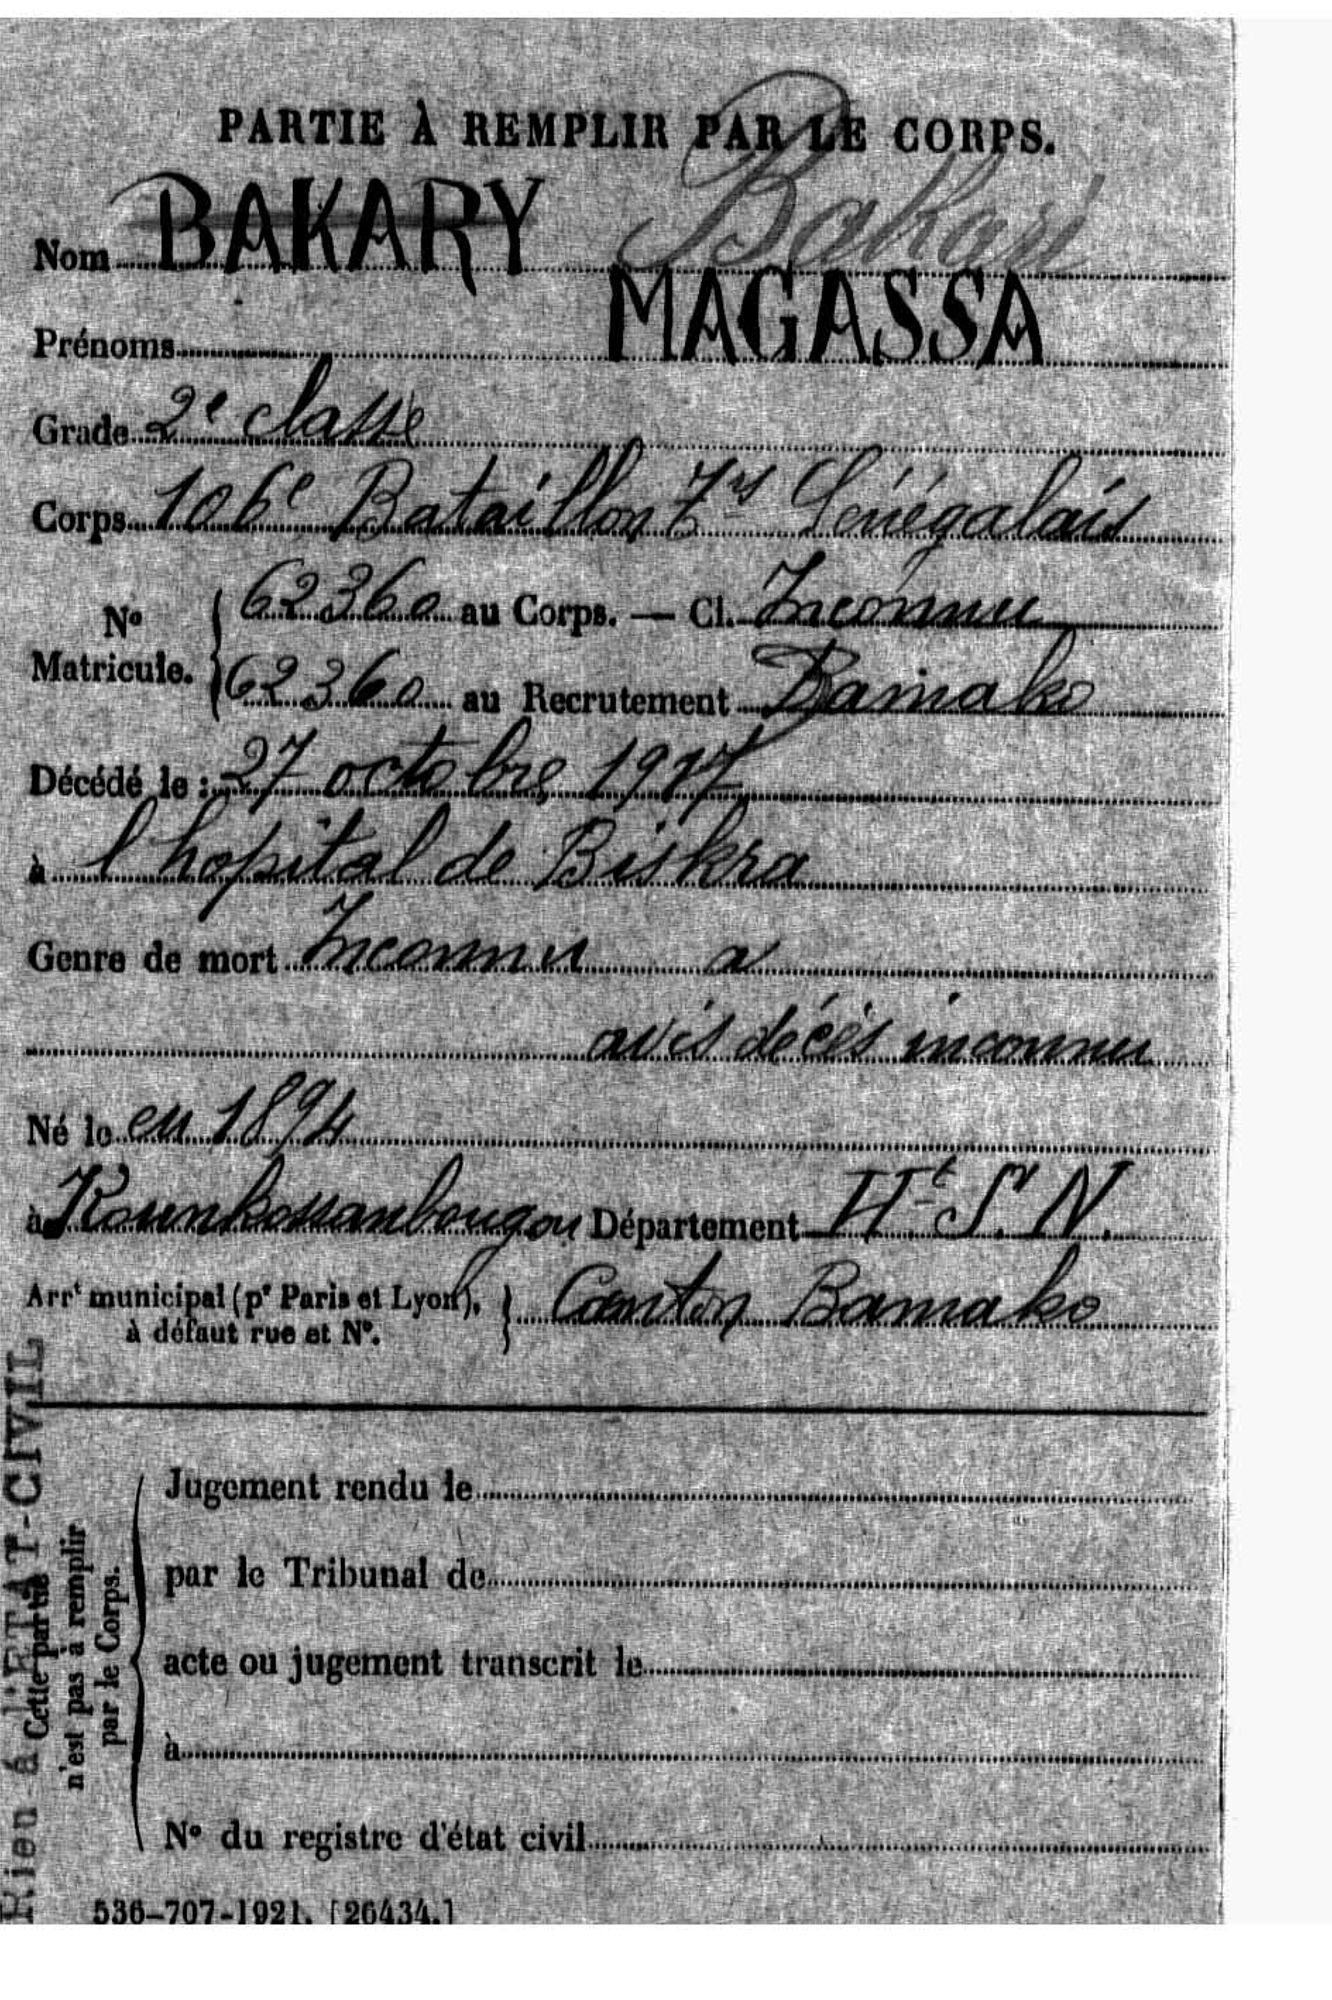 PARTIE À REMPLIR PAR LE CORPS.
Nom BAKARY Bakari
Prénoms MAGASSA
Grade 2e classe
Corps 106e Bataillon Trs Sénégalais
No Matricule. { 62360 au Corps. — Cl. Inconnu
62360 au Recrutement Bamako
Décédé le : 27 octobre 1917
à l'hopital de Biskra
Genre de mort Inconnu a
avis décès inconnu
Né le en 1894
à Kounkossanbougou Département Ht S. N.
Arrt municipal (pr Paris et Lyon), à défaut rue et No. } Canton Bamako
Rien à l'ETAT-CIVIL
Cette partie
n'est pas à remplir
par le Corps.
Jugement rendu le
par le Tribunal de
acte ou jugement transcrit le
à
No du registre d'état civil
536-707-1921. [26434.]